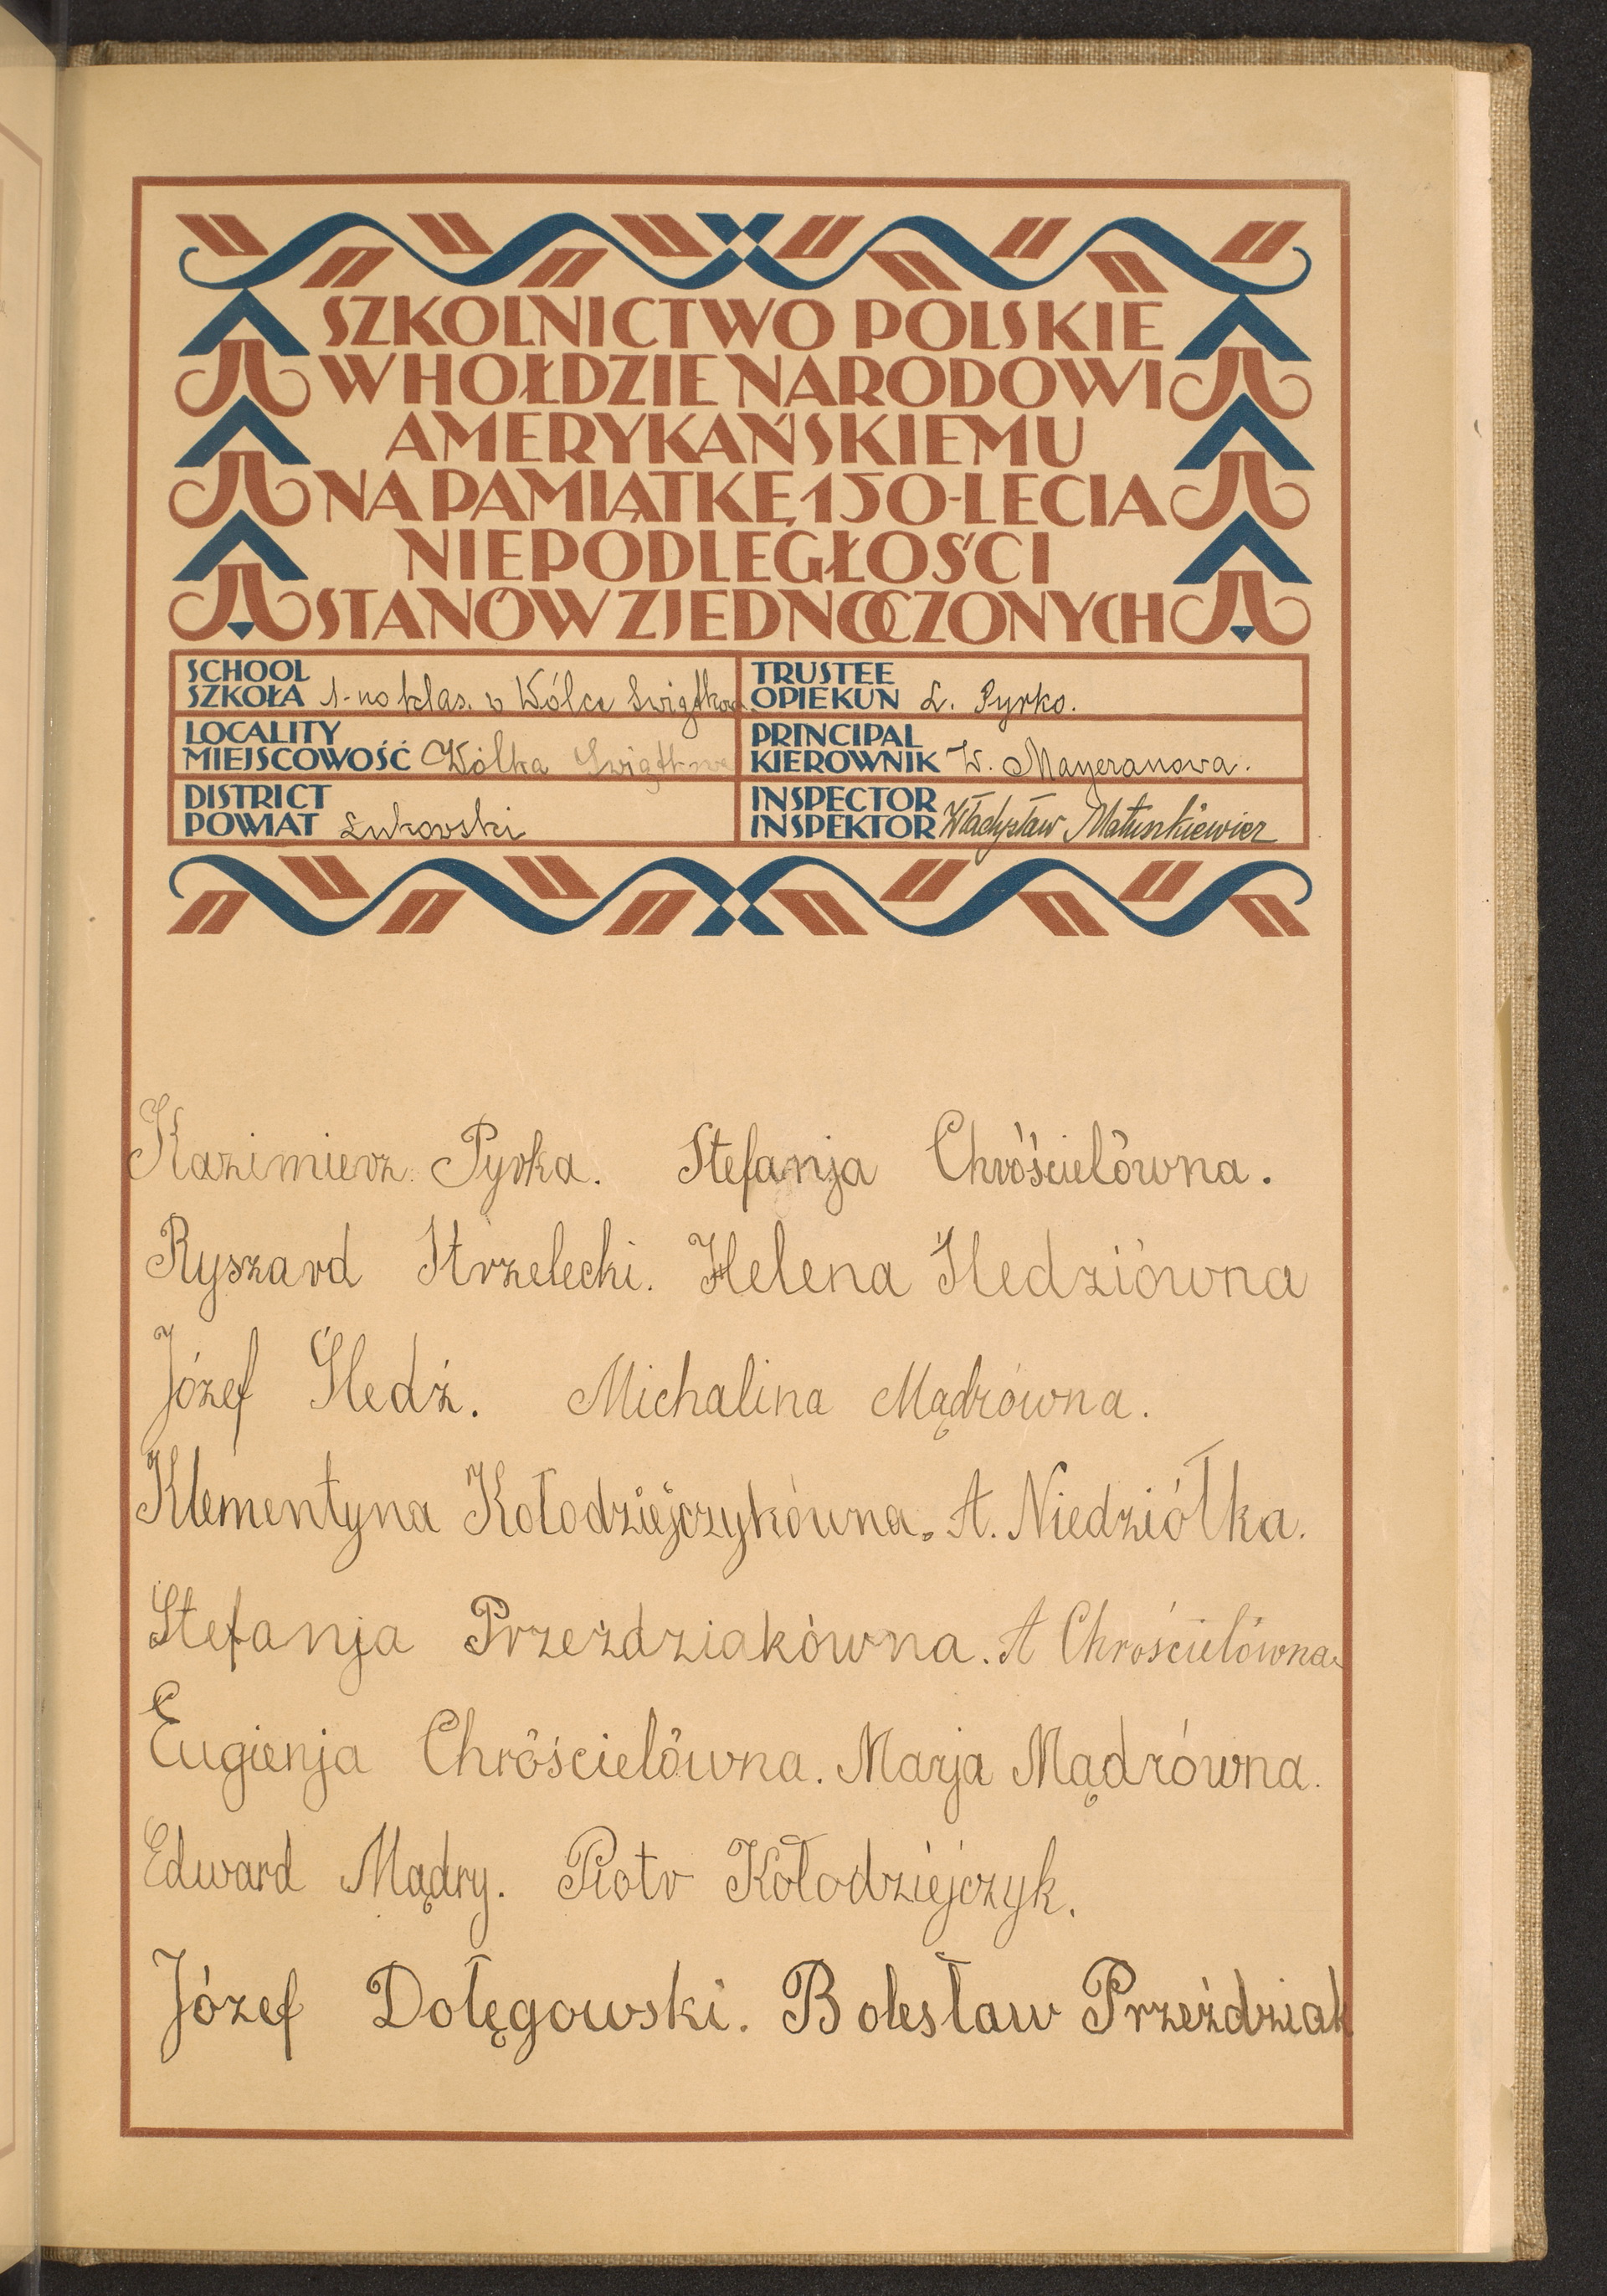 SZKOLNICTWO POLSKIE
W HOŁDZIE NARODOWI
AMERYKAŃSKIEMU
NA PAMIĄTKĘ 150-LECIA
NIEPODLEGŁOŚCI
STANÓW ZJEDNOCZONYCH
SCHOOL
SZKOŁA 1-no klas. w Wólce Świątkow.
LOCALITY
MIEJSCOWOŚĆ Wólka Świątkowa
DISTRICT
POWIAT Łukowski
TRUSTEE
OPIEKUN Ł. Pyrko.
PRINCIPAL
KIEROWNIK W. Mayeranowa.
INSPECTOR
INSPEKTOR Władysław Matuszkiewicz
Kazimierz Pyrka. Stefanja Chróścielówna.
Ryszard Strzelecki. Helena Śledziówna
Józef Śledź. Michalina Mądrówna.
Klementyna Kołodziejczykówna. A. Niedziółka.
Stefanja Przeździakówna. A Chrościelówna.
Eugienja Chróścielówna. Marja Mądrówna.
Edward Mądry. Piotr Kołodziejczyk.
Józef Dołęgowski. Bolesław Przeździak